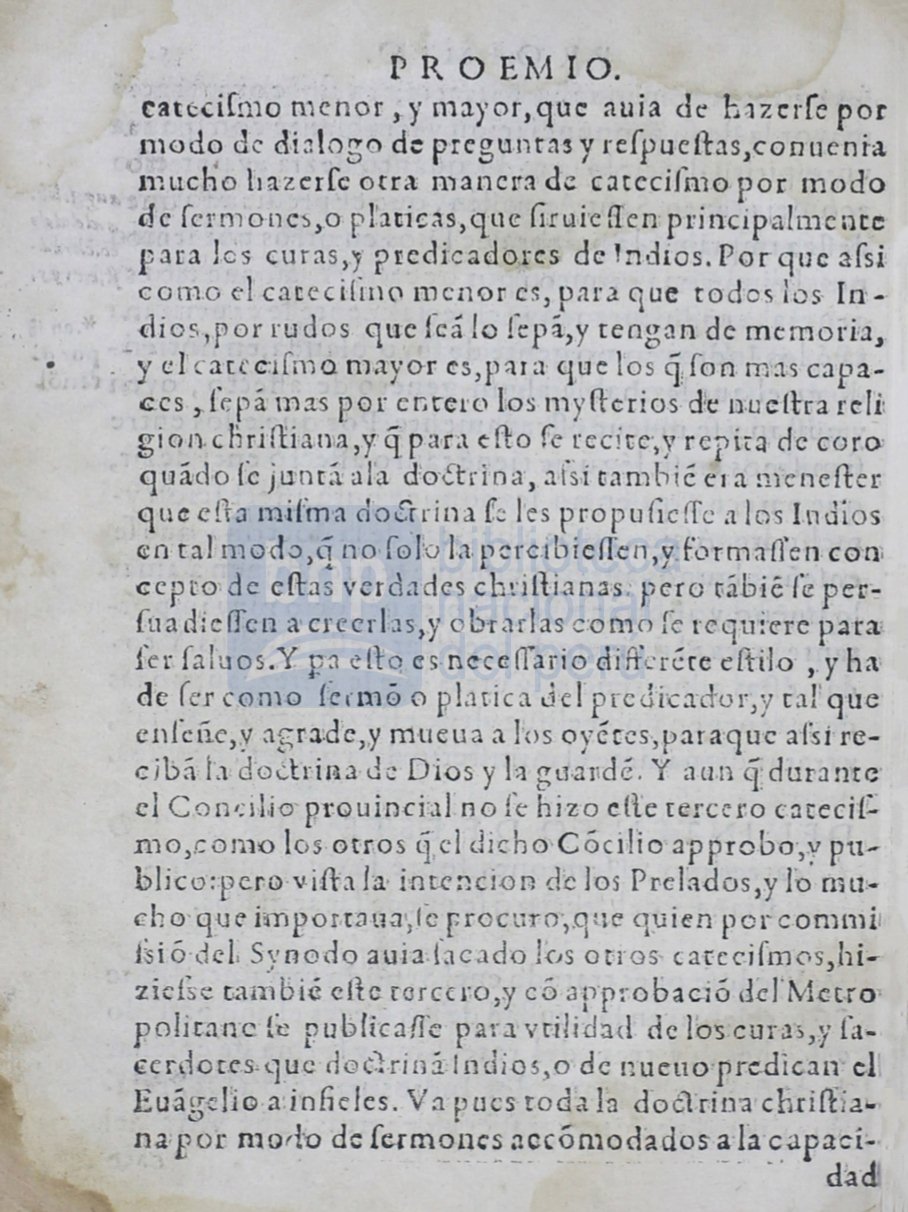 PROEMIO.
cateciſmo menor, y mayor, que auia de hazerſe por
modo de dialogo de preguntas y reſpueſtas, conuenia
mucho hazerſe otra manera de cateciſmo por modo
de ſermones, o platicas, que ſiruieſſen principalmente
para los curas, y predicadores de Indios. Por que aſsi
como el cateciſmo menor es, para que todos los In-
dios, por rudos que ſeã lo ſepã, y tengan de memoria,
y el cateciſmo mayor es, para que los q̃ ſon mas capa-
ces, ſepã mas por entero los myſterios de nueſtra reli
gion chriſtiana, y q̃ para eſto ſe recite, y repita de coro
quãdo ſe juntã ala doctrina, aſsi tambiẽ era meneſter
que eſta miſma doctrina ſe les propuſieſſe a los Indios
en tal modo, q̃ no ſolo la percibieſſen, y formaſſen con
cepto de eſtas verdades chriſtianas: pero tãbiẽ ſe per-
ſuadieſſen a creerlas, y obrarlas como ſe requiere para
ſer ſaluos. Y pa eſto es neceſſario differẽte eſtilo, y ha
de ſer como ſermõ o platica del predicador, y tal que
enſeñe, y agrade, y mueua a los oyẽtes, paraque aſsi re-
cibã la doctrina de Dios y la guardẽ. Y aun q̃ durante
el Concilio prouincial no ſe hizo eſte tercero cateciſ-
mo, como los otros q̃ el dicho Cõcilio approbo, y pu-
blico: pero viſta la intencion de los Prelados, y lo mu-
cho que importaua, ſe procuro, que quien por commi
ſsiõ del Synodo auia ſacado los otros catecíſmos, hi-
zieſse tambiẽ eſte tercero, y cõ approbaciõ del Metro
politano ſe publicaſſe para vtilidad de los curas, y ſa-
cerdotes que doctrinã Indios, o de nueuo predican el
Euãgelio a infieles. Va pues toda la doctrina chriſtia-
na por modo de ſermones accõmodados a la capaci-
dad
biblioteca
nacional
del perú